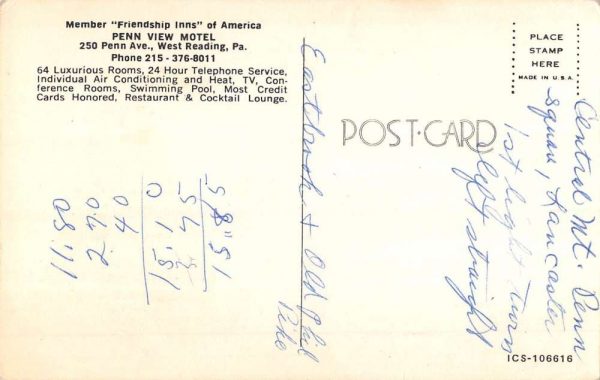 Member "Friendship Inns" of America
PENN VIEW MOTEL
250 Penn Ave., West Reading, Pa.
Phone 215 - 376-8011
64 Luxurious Rooms, 24 Hour Telephone Service,
Individual Air Conditioning and Heat, TV, Con-
ference Rooms, Swimming Pool, Most Credit
Cards Honored, Restaurant & Cocktail Lounge.
PLACE
STAMP
HERE
MADE IN U.S.A.
POST-CARD
Central Mt. Penn
square, Lancaster
1st light turn
left straight
Eastbrook + Old Phil
Pike
40
2.40
11.50
ICS-106616